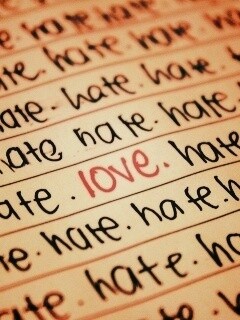 hate. hate
hate. hate. hate
hate. hate. hate
hate. hate. hate
hate. love. hate
hate. hate. hate. h
te. hate. hate
hate. hate